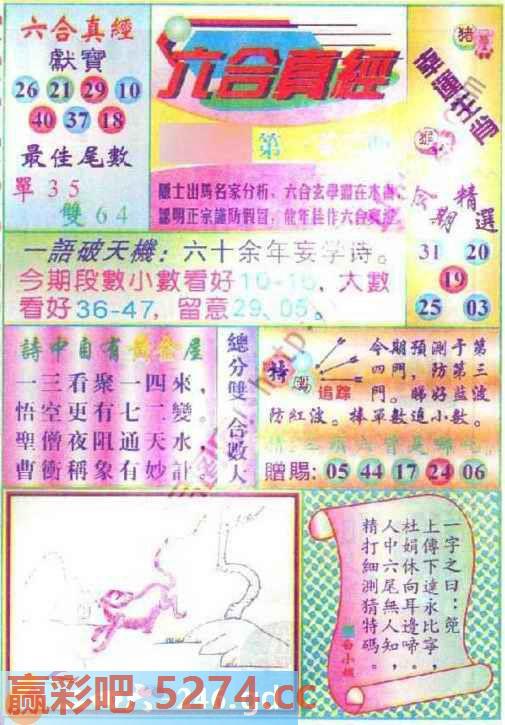 六合真經
獻寶
26 21 29 10
40 37 18
最佳尾數
單35
雙64
六合真經
第
猪
幸運生肖
今期精選
31 20
19
25 03
一語破天機：六十余年妄学诗。
今期段數小數看好10-15，大數
看好36-47，留意29、05。
詩中自有黃金屋
一三看聚一四來，
悟空更有七二變。
聖僧夜阻通天水，
曹衝稱象有妙計。
總分雙 合數大
特碼
追踪
今期預測于第
四門，防第三
門。睇好蓝波
防紅波。捧單數追小數。
贈賜：05 44 17 24 06
一字之曰：
上傳下達永比寧，
杜娟休向耳邊啼。
人中六尾無人知，
精打細測猜特碼。
白小姐
赢彩吧 5274.cc
246.gd